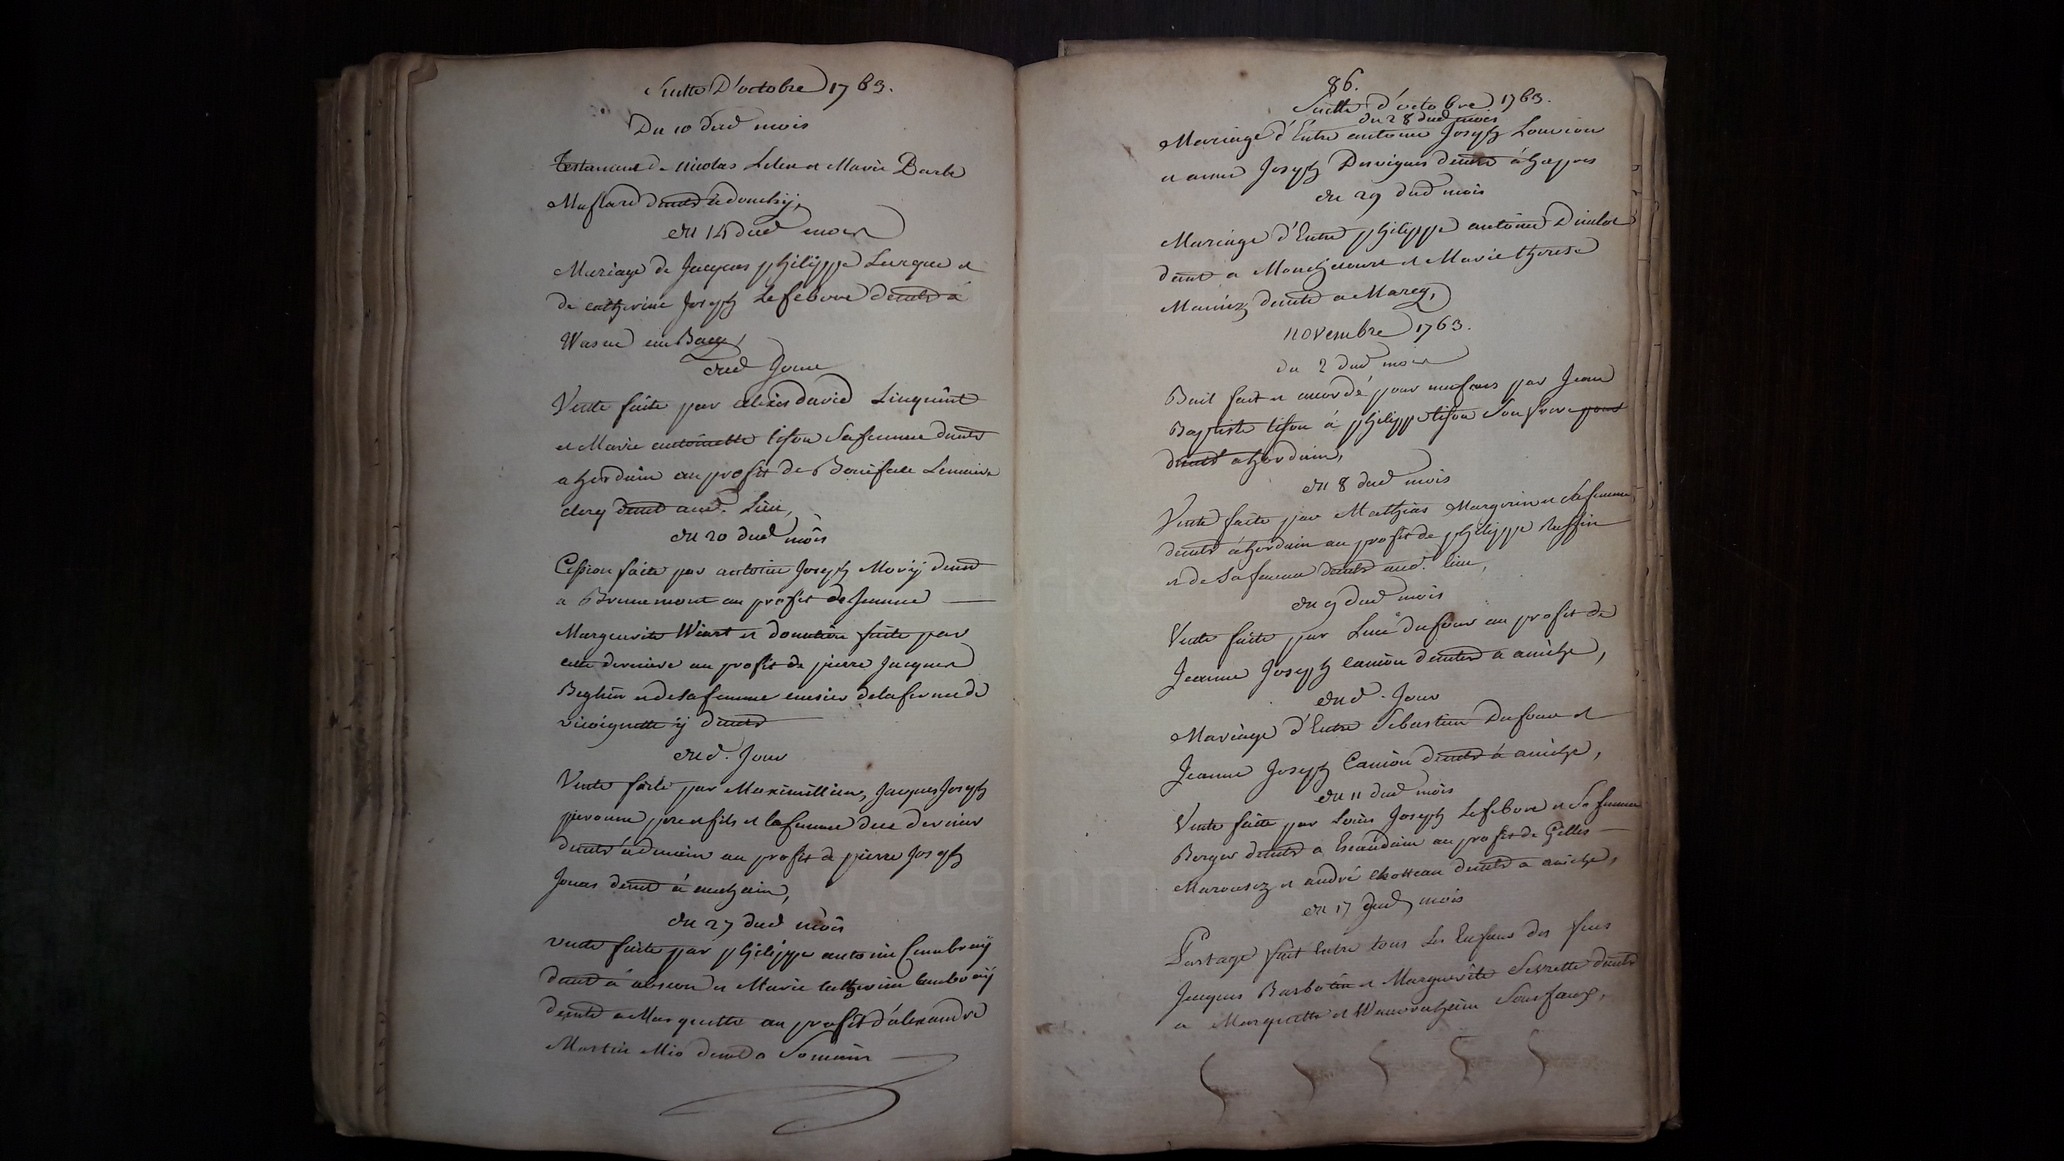 Suitte D'octobre 1763.
Du 10 dud mois
Testament de nicolas Leleu et Marie Barbe
Muflard deuts a douchÿ,
du 14 dud mois
Mariage de Jacques philippe Lecque et
de catherine Joseph Lefebvre deuts a
Wasne au Bacq,
dud Jour
Vente faite par alexis david Linquint
et Marie antoinette tison sa femme deuts
a hordain au profit de Boniface Lemaire
clercq deuts aud. Lieu,
du 20 dud mois
Cession faite par antoine Joseph Morÿ deuts
a Brunemont au profit de Jeanne
Marguerite Wiart et donation faite par
cette derniere au profit de pierre Jacques
Beghin et de sa femme censier de la ferme de
vicoignette ÿ deuts
dud. Jour
Vente faite par Maximillien, Jacques Joseph
pieronne pere et fils et la femme due dernier
deuts a denain au profit de pierre Joseph
Jonas deuts à
du 27 dud mois
vente faite par philippe antoine Cambraÿ
deuts à abscon et Marie catherine Cambraÿ
deuts a Marquette au profit d'alexandre
Martin Mio deuts a Somain
86.
Suitte d'octobre 1763.
du 28 dud mois
Mariage d'Entre antoine Joseph Louvion
et anne Joseph Desvignes deuts à haspres
du 29 dud mois
Mariage d'Entre philippe antoine
deuts a Monchecourt et Marie therese
deuts a Marcq,
novembre 1763.
du 2 dud mois
Bail fait et accordé pour neuf ans par Jean
Baptiste tison à philippe tison son frere
deuts a hordain,
du 8 dud mois
Vente faite par Mathias Margerin et sa femme
deuts à hordain au profit de philippe Ruffin
et de sa femme deuts aud. lieu,
du 9 dud mois
Vente faite par Lucé dufour au profit de
Jeanne Joseph Canion deuts a aniche,
dud. Jour
Mariage d'Entre Sebastien Dufour et
Jeanne Joseph Canion deuts à aniche,
du 11 dud mois
Vente faite par Louis Joseph Lefebvre et sa femme
Berger deuts a Escaudain au profit de Gilles
et andré deuts a aniche,
du 17 dud mois
Partage fait Entre tous Les Enfans des feus
Jacques Barbotin et Marguerite deuts
a Marquette et Wavrechain Sous faux,